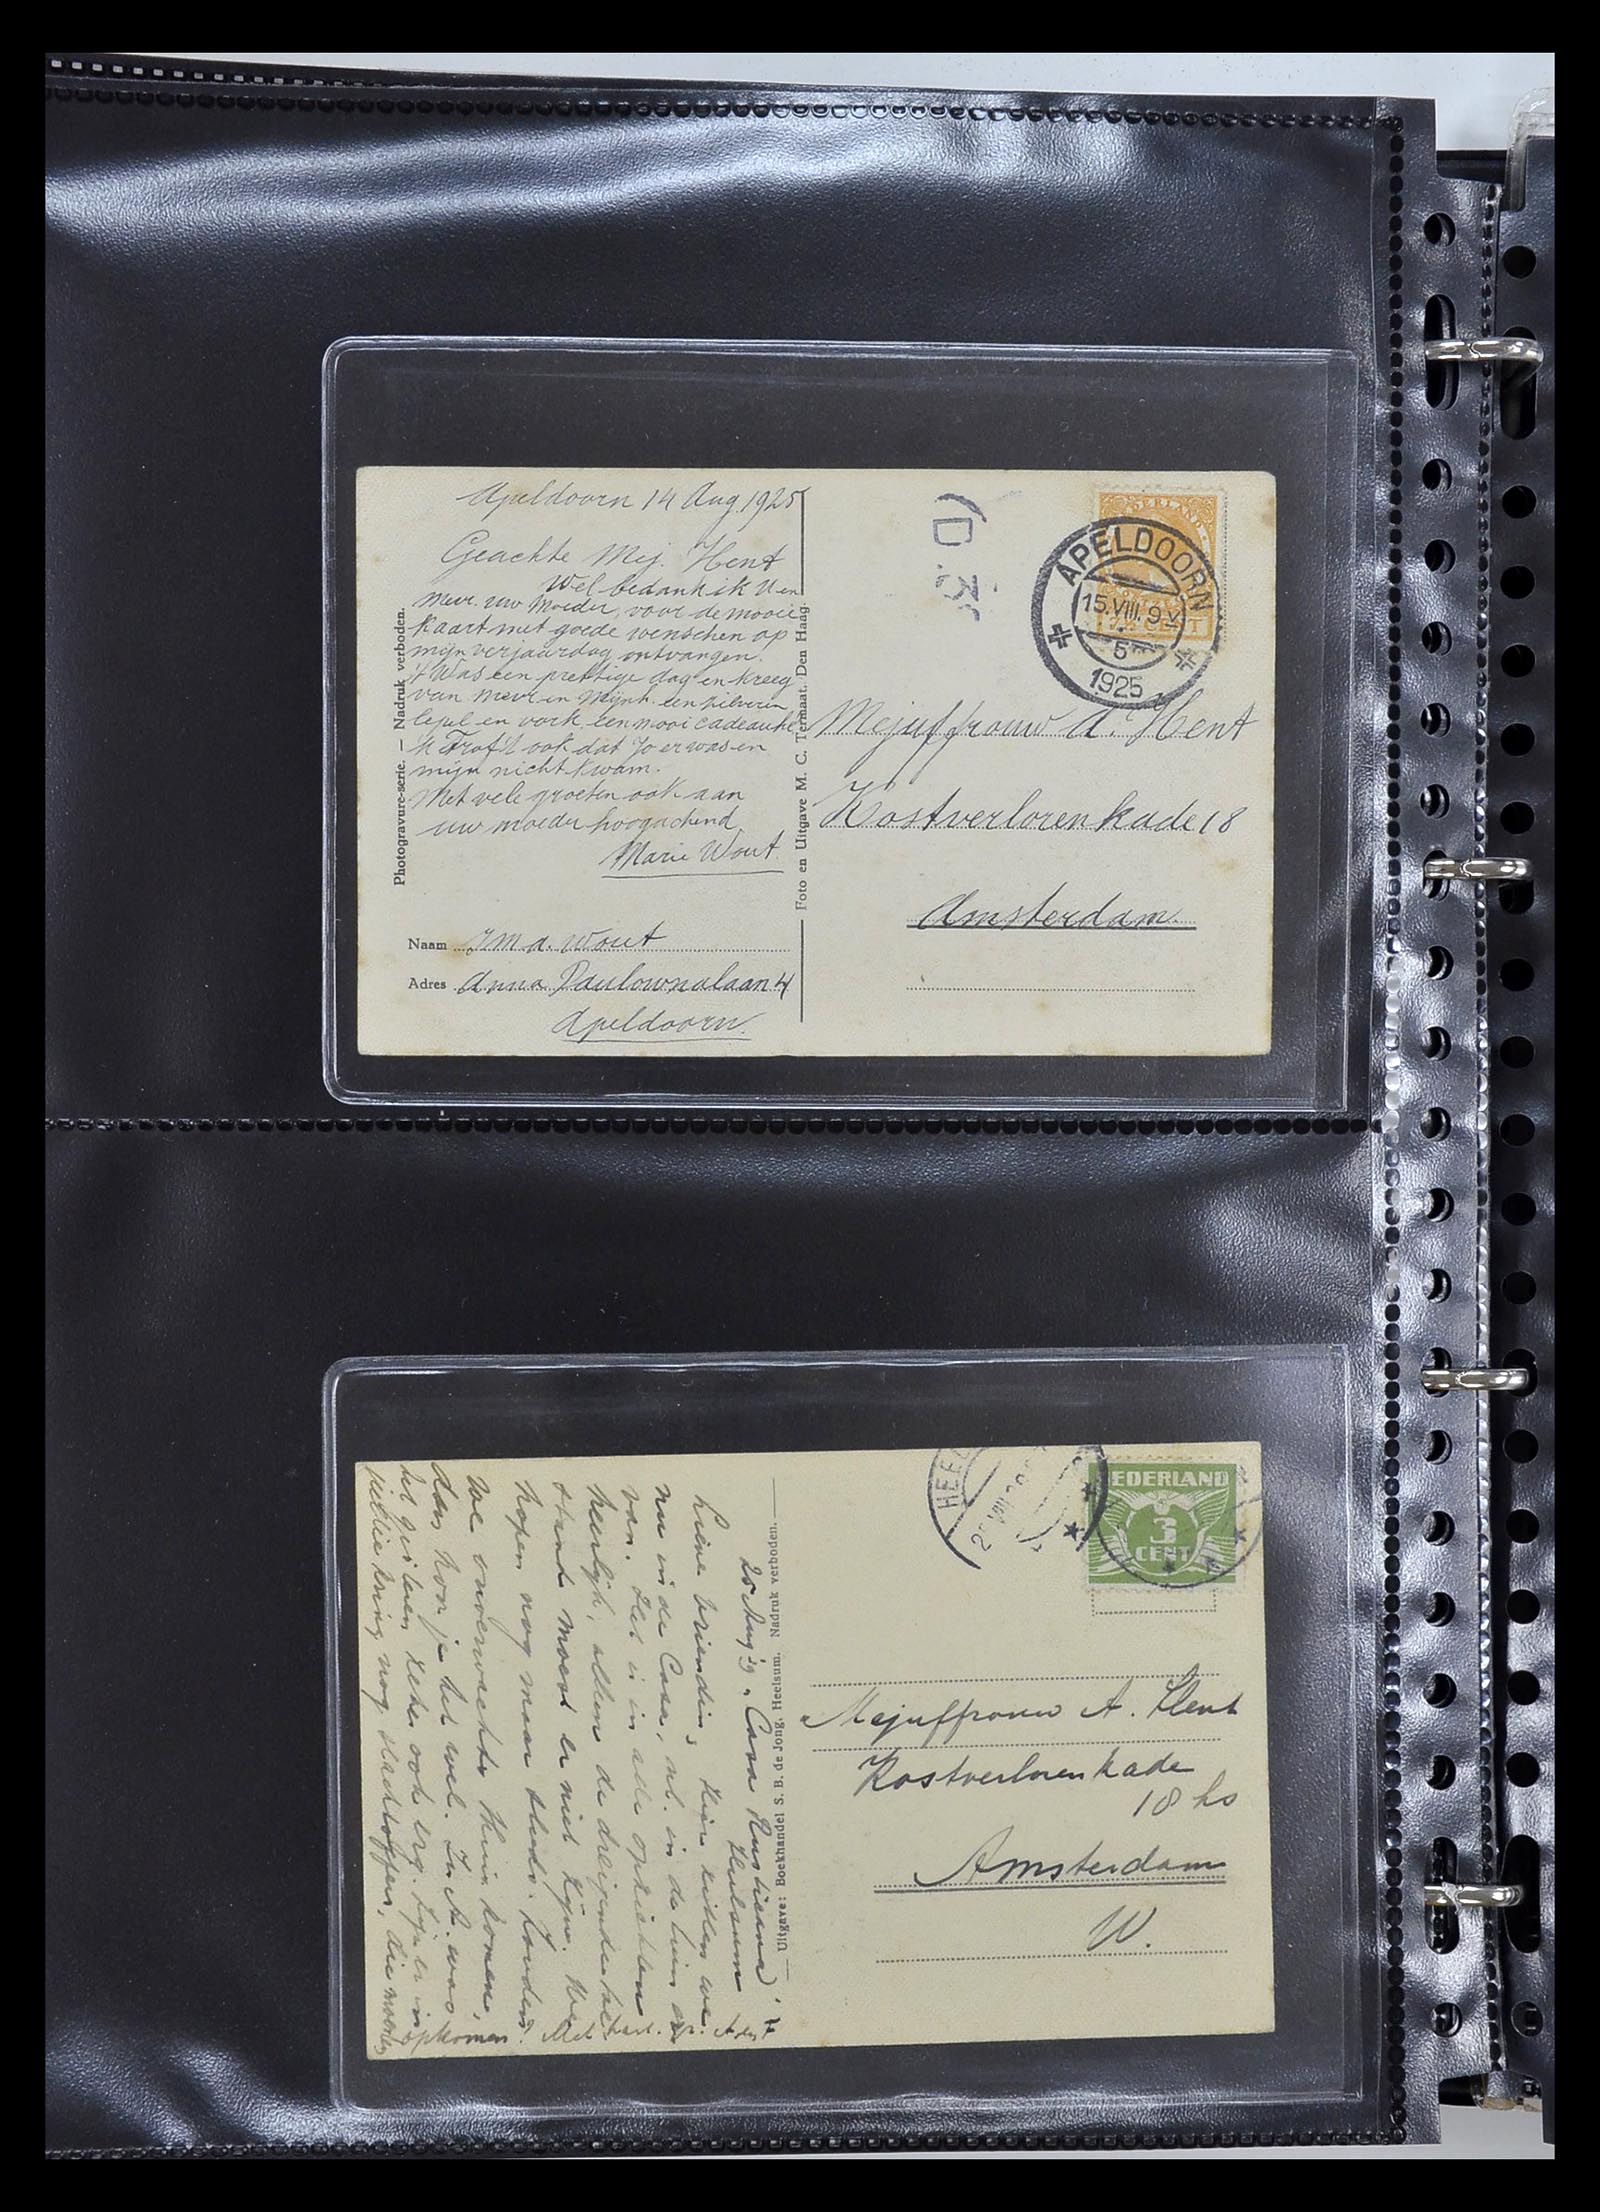 Apeldoorn 14 Aug. 1925
Geachte Mej. Hent
Wel bedank ik U en
Mevr. uw Moeder, voor de mooie
kaart met goede wenschen op
mijn verjaardag ontvangen.
't Was een prettige dag en kreeg
van Mevr en Mijnh. een zilveren
lepel en vork. een mooi cadeautje
'k Trof 't ook dat Jo er was en
mijn nicht kwam.
Met vele groeten ook aan
uw moeder hoogachend
Marie Wout.
Naam J M A. Wout
Adres Anna Paulownalaan 4
Apeldoorn.
Photogravure-serie. — Nadruk verboden.
Foto en Uitgave M. C. Termaat. Den Haag.
(D.3
NEDERLAND
7½ CENT
APELDOORN
15.VIII. 9-V
5
1925
Mejuffrouw A. Hent
Kostverlorenkade 18
Amsterdam.
HEEL
NEDERLAND
3
CENT
Mejuffrouw A. Hent
Kostverlorenkade
18 hs
Amsterdam
W.
Uitgave: Boekhandel S. B. de Jong, Heelsum. Nadruk verboden.
25 Aug '29 "Casa Rusticana"
Heelsum
Lieve vriendin, Hier zitten we
nu in de Casa, nl. in de tuin er
van. Het is in alle opzichten
heerlijk, alleen de dreigende
stand moest er niet zijn. We
hopen nog maar steeds.
Hoe onverwachts thuis komen,
dat kon je het wel. In A. was
het gisteren zeker ook erg. Zijn er in
jullie kring nog slachtoffers, die moeten
opkomen? Met hart. gr. A en F